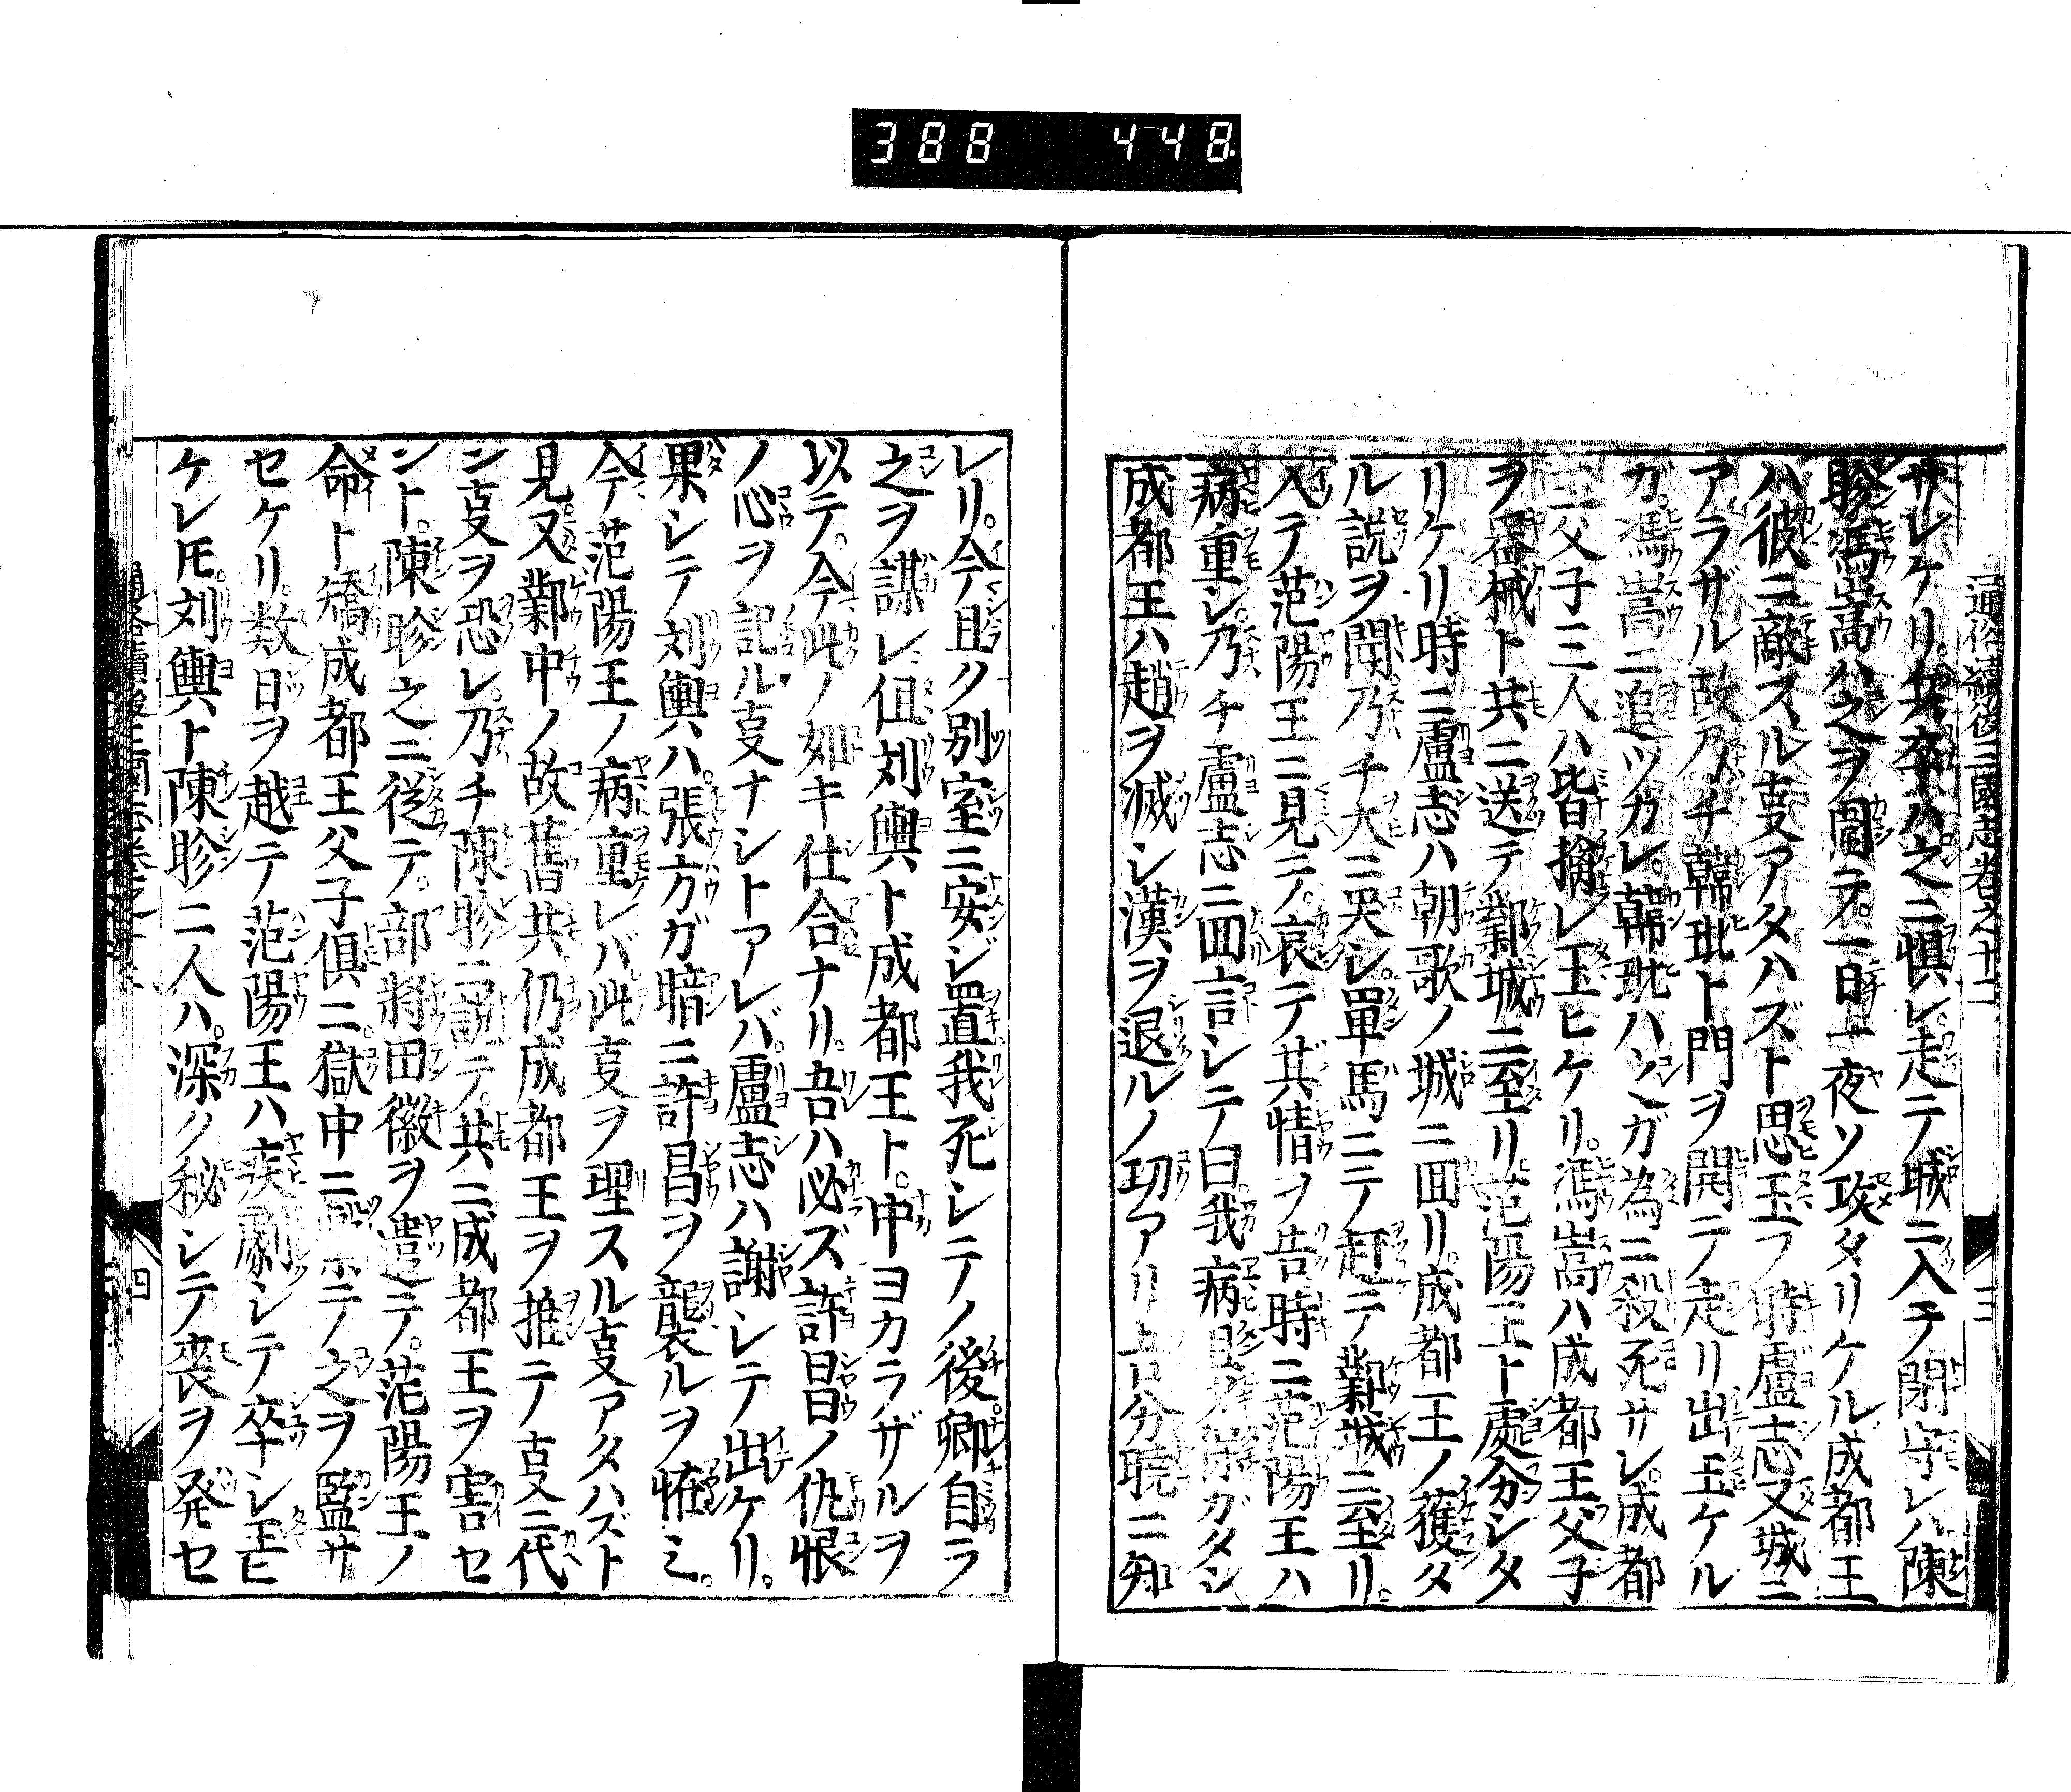 388 448
通俗續後三國志卷之十二 三
サレケリ。兵卒ハ之ニ懼レ。走テ城ニ入チ閉守レハ陳
眕馮嵩ハ之ヲ圍テ。一日一夜ソ攻タリケル成都王
ハ彼ニ敵スル叓アタハズト思玉フ時盧志又城ニ
アラザル故乃チ韓玭ト門ヲ開テ走リ出玉ケル
ガ。馮嵩ニ追ツカレ。韓玭ハ ガ為ニ殺死サレ。成都
王父子三人ハ皆擒レ玉ヒケリ。馮嵩ハ成都王父子
ヲ噐械ト共ニ送テ鄴城ニ至リ范陽王ト處分シタ
リケリ時ニ盧志ハ朝歌ノ城ニ回リ。成都王ノ獲タ
ル説ヲ聞乃チ大ニ哭シ。單馬ニテ赶テ鄴城ニ至リ。
入テ范陽王ニ見テ。哀テ其情ヲ告時ニ范陽王ハ
病重シ。乃チ盧志ニ回言シテ曰。我病 ガタシ
成都王ハ趙ヲ滅シ漢ヲ退ルノ功アリ 分 ニ知
レリ。今且ク別室ニ安ジ置我死シテノ後。卿自ラ
之ヲ謀レ但刘輿ト成都王ト。中ヨカラザルヲ
以テ。今此ノ如キ仕合ナリ。吾ハ必ズ許昌ノ仇恨
ノ心ヲ記ル叓ナシトアレバ。盧志ハ謝シテ出ケリ。
果シテ刘輿ハ。張方ガ暗ニ許昌ヲ襲ルヲ恠ミ。
今范陽王ノ病重レバ此叓ヲ理スル叓アタハズト
見。又鄴中ノ故舊共仍成都王ヲ推テ叓ニ代
ン叓ヲ恐レ。乃チ陳眕ニ説テ。共ニ成都王ヲ害セ
ント。陳眕之ニ従テ。部将田徽ヲ遣テ。范陽王ノ
命ト矯成都王父子倶ニ。獄中ニ テ之ヲ監サ
セケリ。数日ヲ越テ范陽王ハ疾劇シテ卒シ玉ヒ
ケレ𪜈。刘輿ト陳眕二人ハ。深ク秘シテ喪ヲ発セ
四